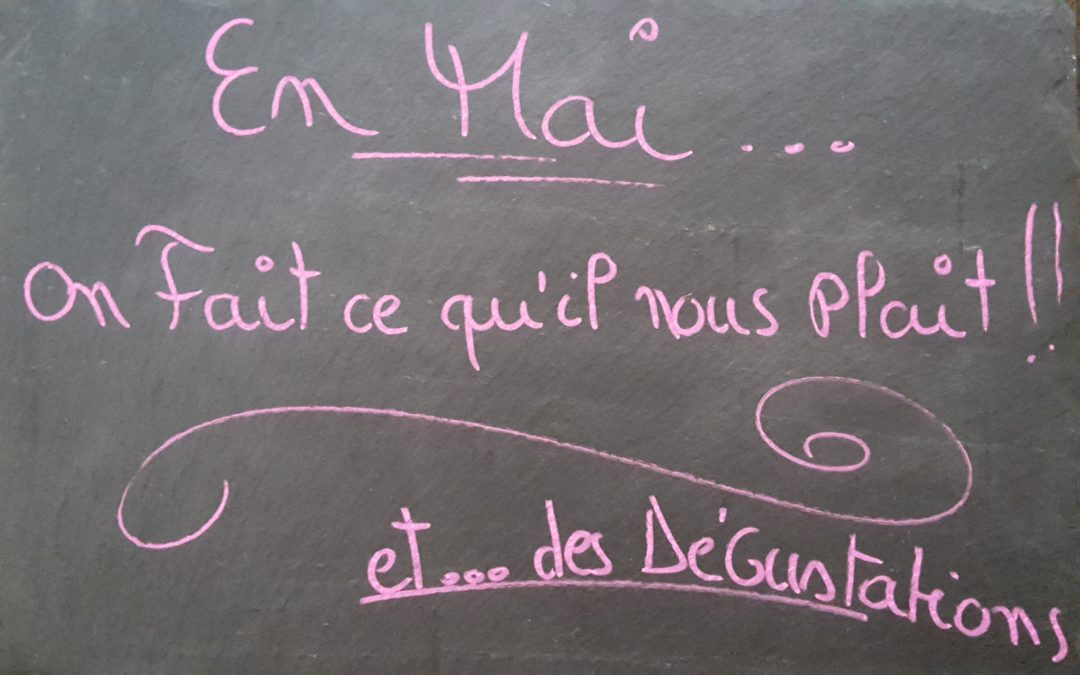 En Mai ...
On Fait ce qu'il nous Plait !!
et... des DéGustations